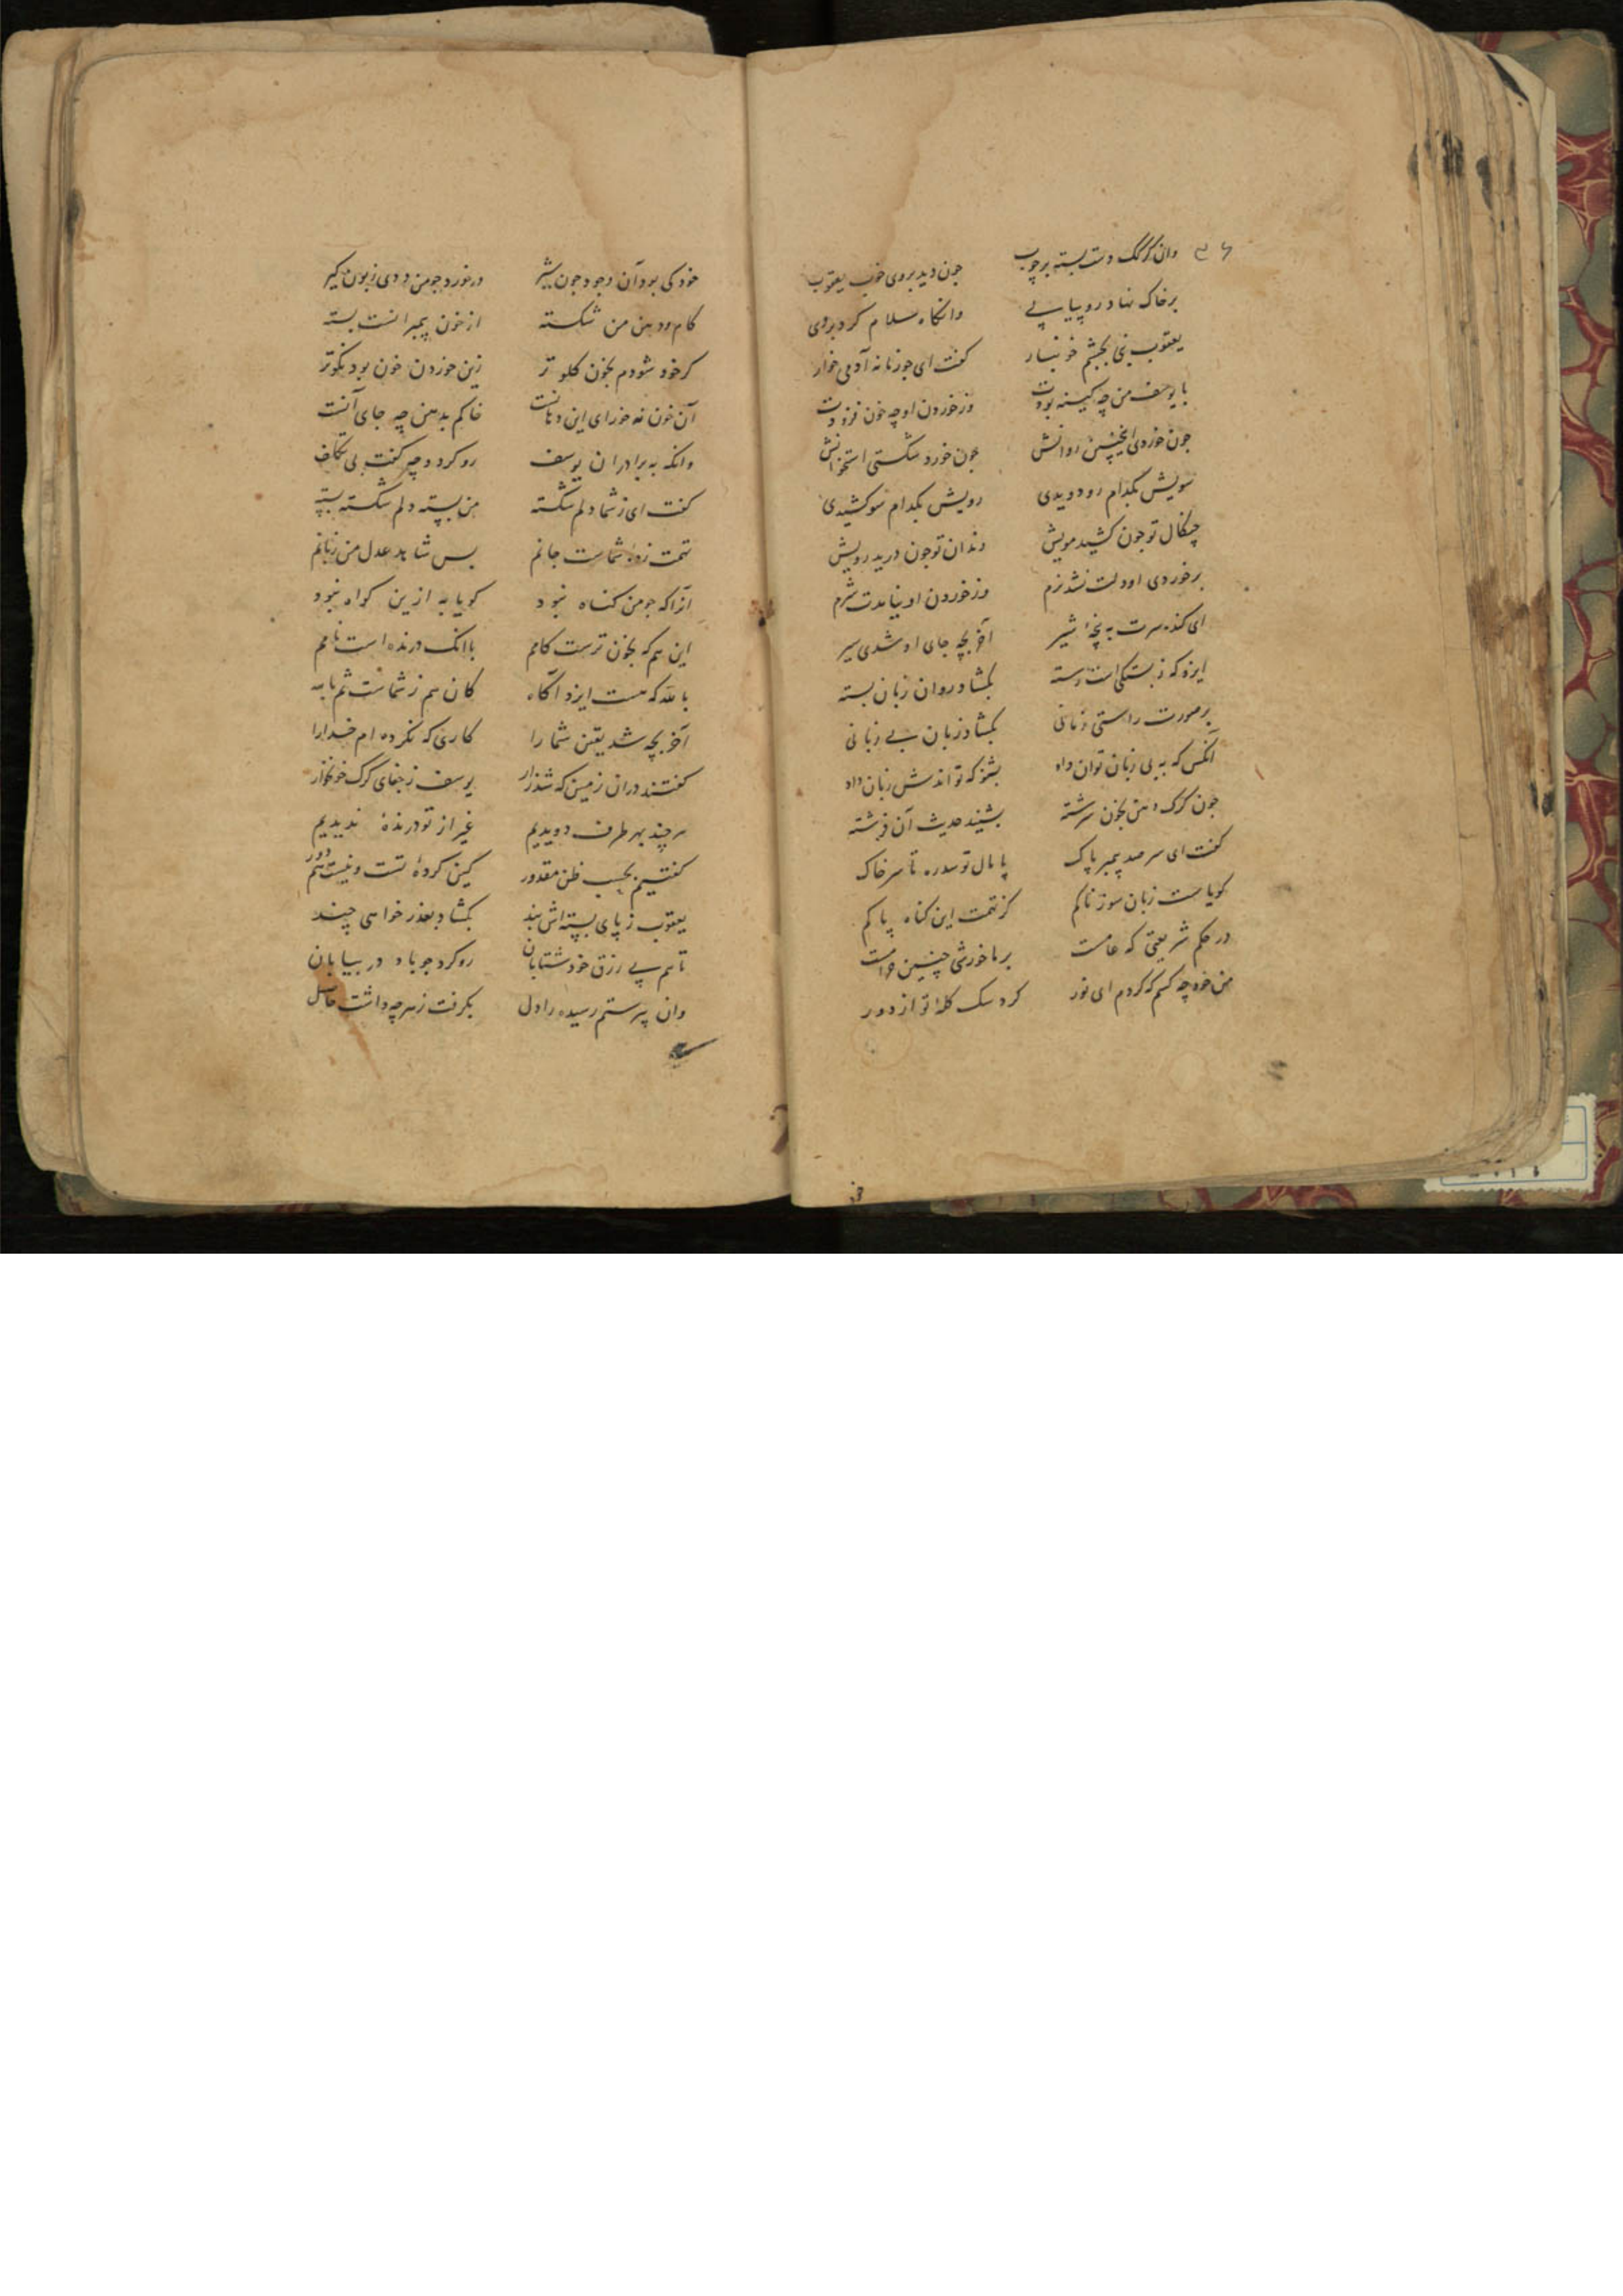 وان گرگ دست بسته بر چوب چون دید بروی خوب یعقوب
بر خاک نهاد رو پیاپی وانگاه سلام کرد بروی
یعقوب نبی بچشم خونبار گفت ای جو زمانه آدمی خوار
با یوسف من چه کینه بودت وز خوردن او چه خون فزودت
جون خوردی اینچنین روانش جون خورد شکستی استخوانش
سویش بکدام رو دویدی رویش بکدام سو کشیدی
چنکال تو جون کشید مویش دندان تو جون درید رویش
بر خوردی او دلت نشد نرم وز خوردن او نیامدت شرم
ای کنده سرت به پنجهٔ شیر آخر بچه جای او شدی سیر
ایزد که ز بستکی است رسته بکشاد روان زبان بسته
بر صورت راستی زبانی بکشاد زبان بی زبانی
آنکس که به بی زبان توان داد بشنو که تواندش زبان داد
جون کرک دهن بخون سرشته بشنید حدیث آن فرشته
گفت ای سر صد پیمبر پاک پامال تو سدره تا سر خاک
کویاست زبان سوزناکم کز تهمت این کناه پاکم
در حکم شریعتی که عامست بر ما خورشی چنین حرامست
من خود چه کسم که کردم ای نور کرد سک کلهٔ تو از دور
خود کی بود آن وجود جون شیر در خورد جو من ددی زبون کیر
کام و دهن من شکسته از خون پیمبرانست بسته
کر خود شودم بخون کلو تر زین خوردن خون بود نکوتر
آن خون نه خورای این دهانست خاکم بدهن چه جای آنست
وانکه به برادران یوسف رو کرد و چه کفت بی تکلف
کفت ای ز شما دلم شکسته من بسته دلم شکسته بسته
تهمت زدهٔ شماست جانم بس شاهد عدل من زبانم
آنرا که جو من کناه نبود کویا به ازین کواه نبود
این هم که بخون ترست کامم باانک درنده است نامم
بالله که هست ایزد آکاه کان هم ز شماست ثم بالله
آخر بچه شد یقین شما را کاری که نکرده ام خدا را
کفتند دران زمین که شد زار یوسف ز جفای کرک خونخوار
هر چند بهر طرف دویدیم غیر از تو درندهٔ ندیدیم
کفتیم بحسب ظن مقدور کین کردهٔ تست و نیست هم دور
یعقوب ز پای بسته اش بند بکشاد بعذر خواهی چند
تا هم پی رزق خود شتابان رو کرد جو باد در بیابان
وان پیر ستم رسیده را دل بکرفت ز هر چه داشت حاصل